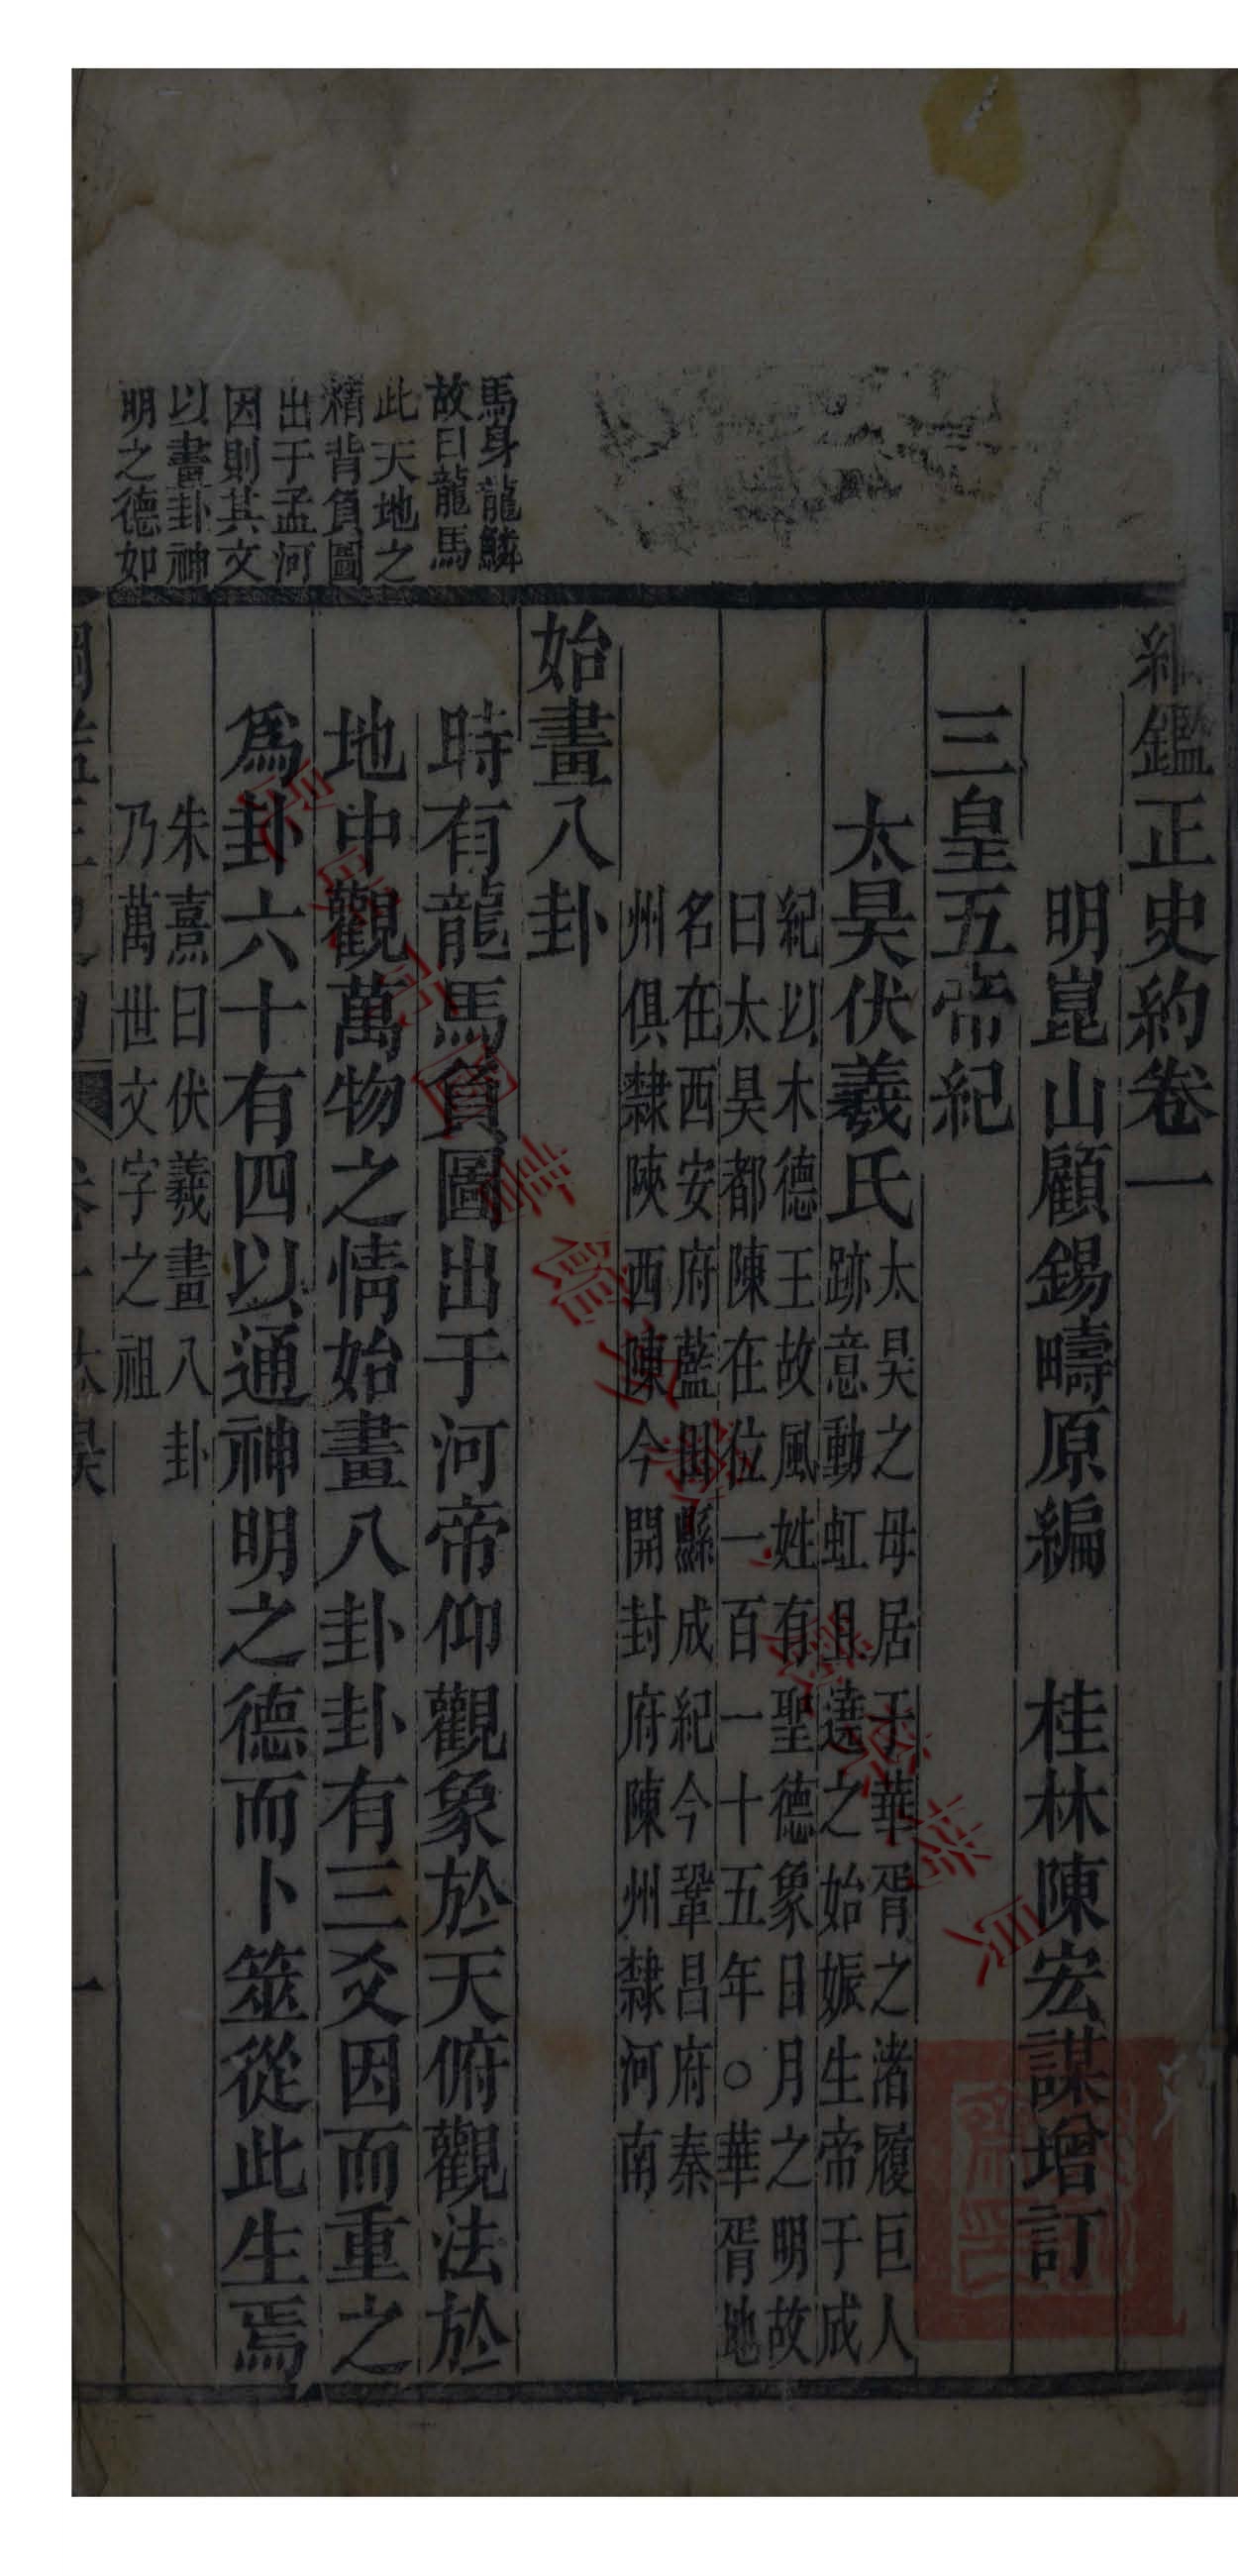 馬身龍鱗
故曰龍馬
此天地之
精背負圖
出于孟河
因則其文
以畫卦神
明之德如
鑑正史約卷一
明崑山顧錫疇原編　桂林陳宏謀增訂
三皇五帝紀
太昊伏羲氏
太昊之母居于華胥之渚履巨人
跡意動虹且遶之始娠生帝于成
紀以木德王故風姓有聖德象日月之明故
曰太昊都陳在位一百一十五年○華胥地
名在西安府藍田縣成紀今鞏昌府秦
州俱隸陝西陳今開封府陳州隸河南
始畫八卦
時有龍馬負圖出于河帝仰觀象於天俯觀法於
地中觀萬物之情始畫八卦卦有三爻因而重之
爲卦六十有四以通神明之德而卜筮從此生焉
朱熹曰伏羲畫八卦
乃萬世文字之祖